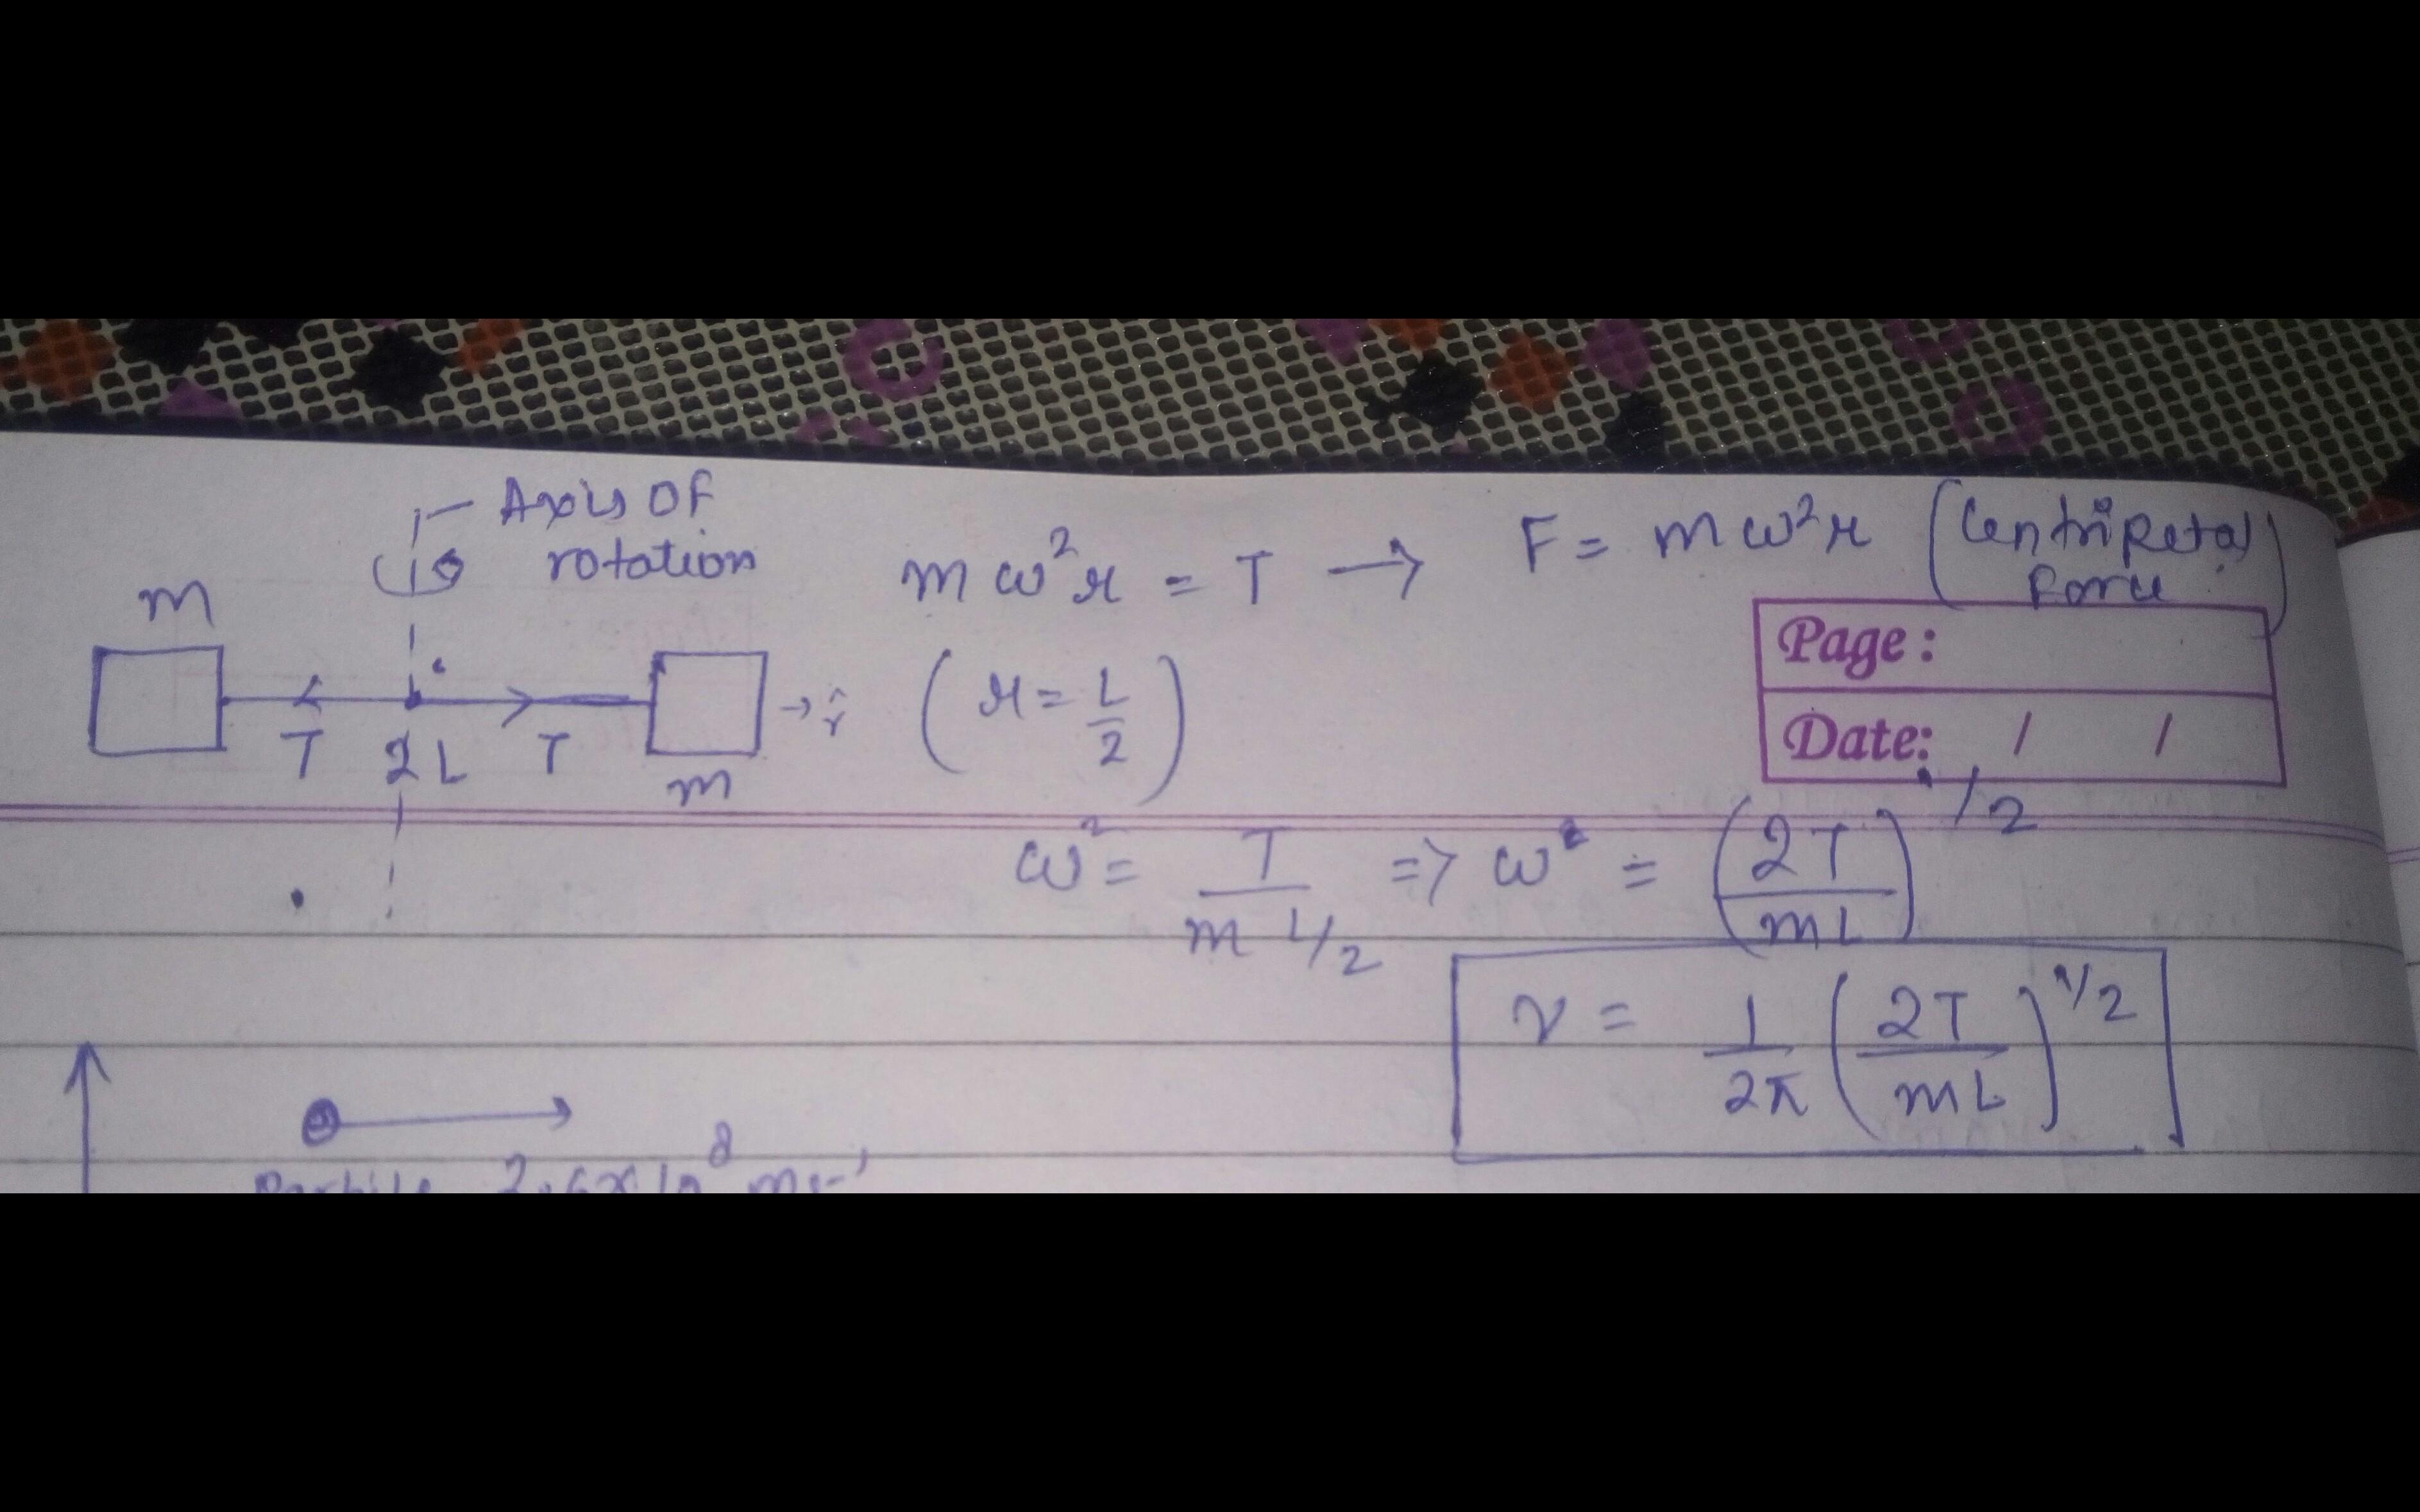 Axis OF
rotation
m
T 2L T
m
→ r̂
mω²r = T → F = mω²r (Centripetal
Force)
(r = L/2)
Page :
Date: / /
ω² = T / m L/2 => ω = (2T / mL)^1/2
ν = 1/2π (2T / mL)^1/2
Particle 2.6×10⁸ ms⁻¹